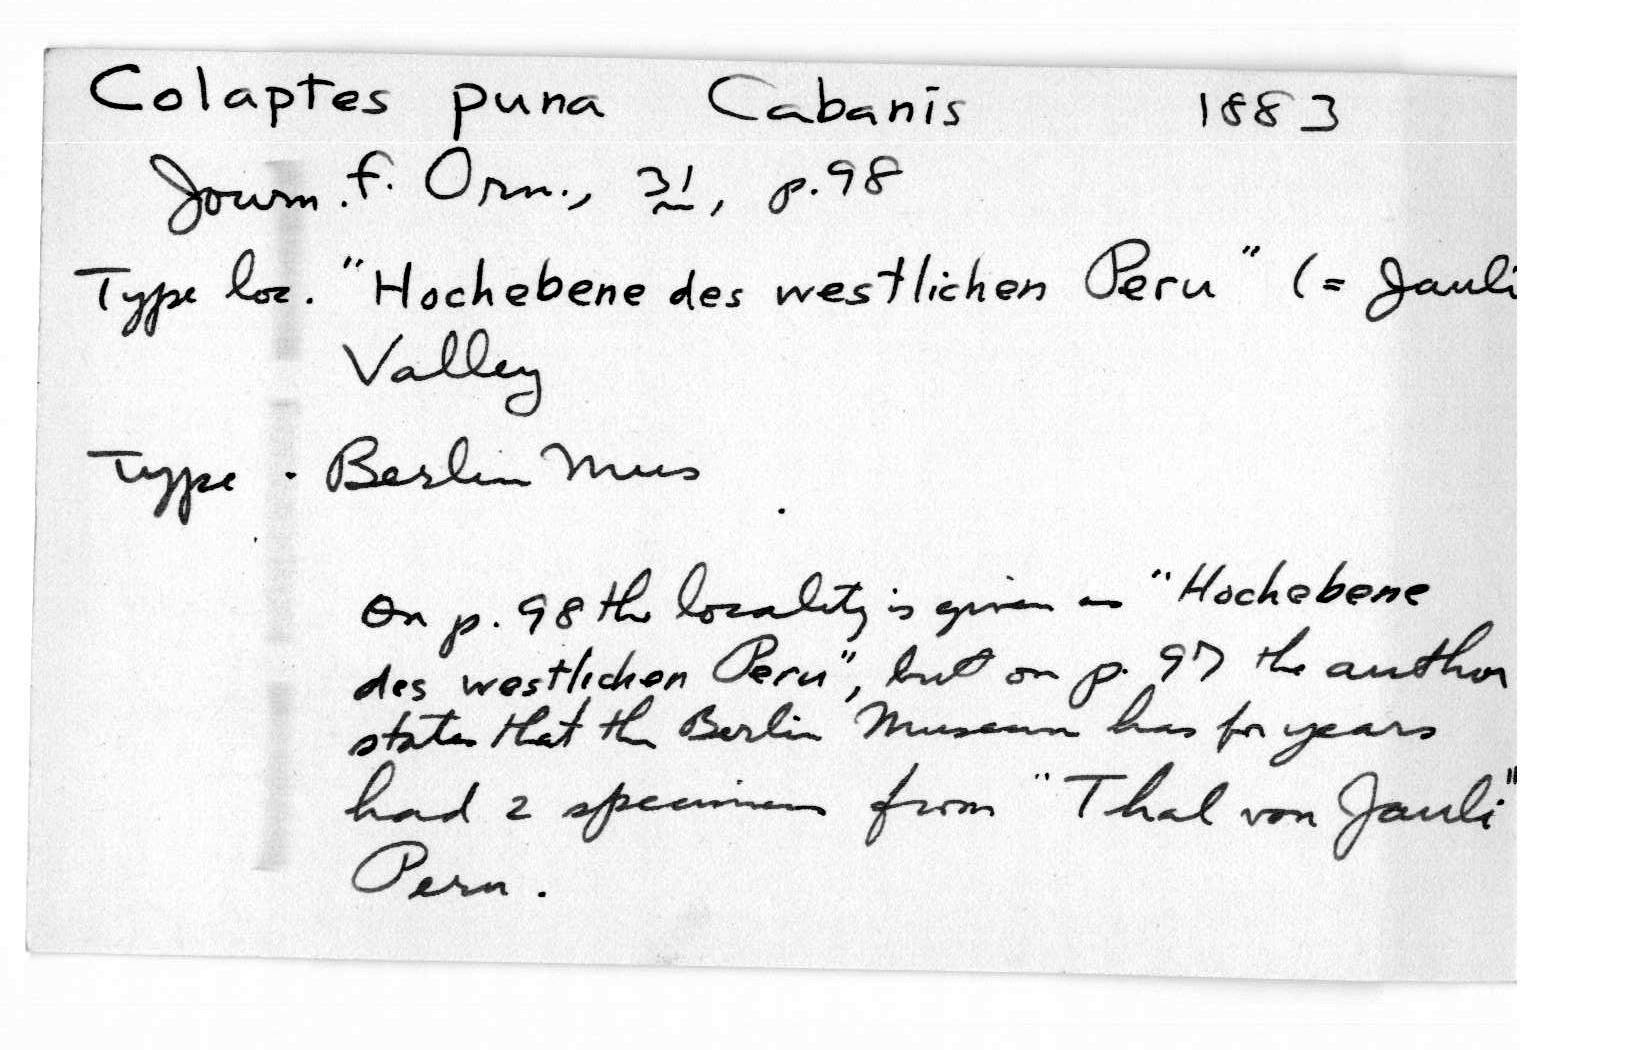 Colaptes puna Cabanis 1883
Journ. f. Orn., 31, p. 98
Type loc. "Hochebene des westlichen Peru" (= Jauli
Valley
Type . Berlin Mus
On p. 98 the locality is given as "Hochebene
des westlichen Peru", but on p. 97 the author
states that the Berlin Museum has for years
had 2 specimens from "Thal von Jauli"
Peru.